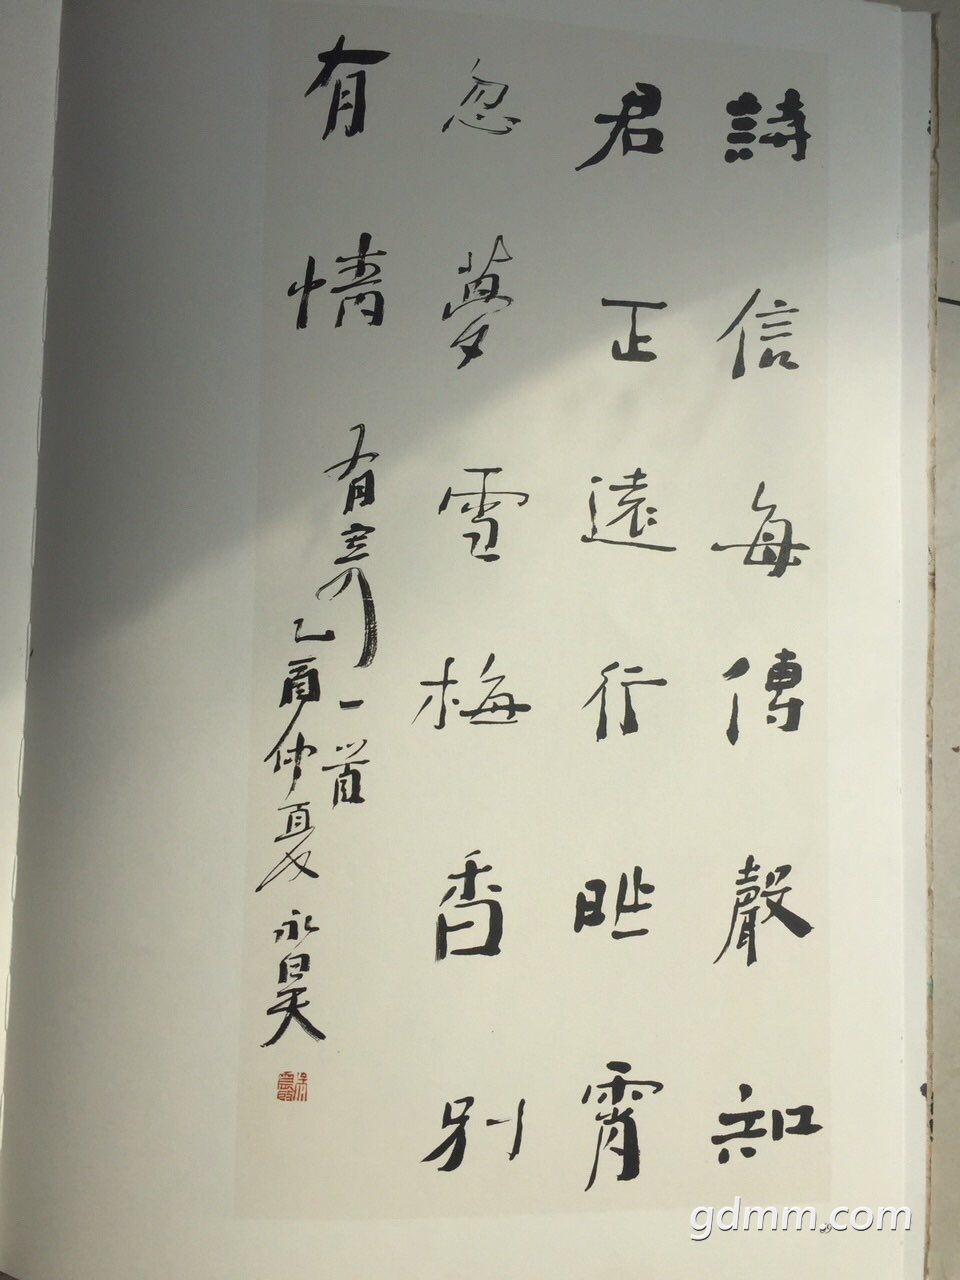 詩信每傳聲知
君正遠行昨宵
忽夢雪梅香別
有情
有寄一首
乙酉仲夏 永昊
gdmm.com